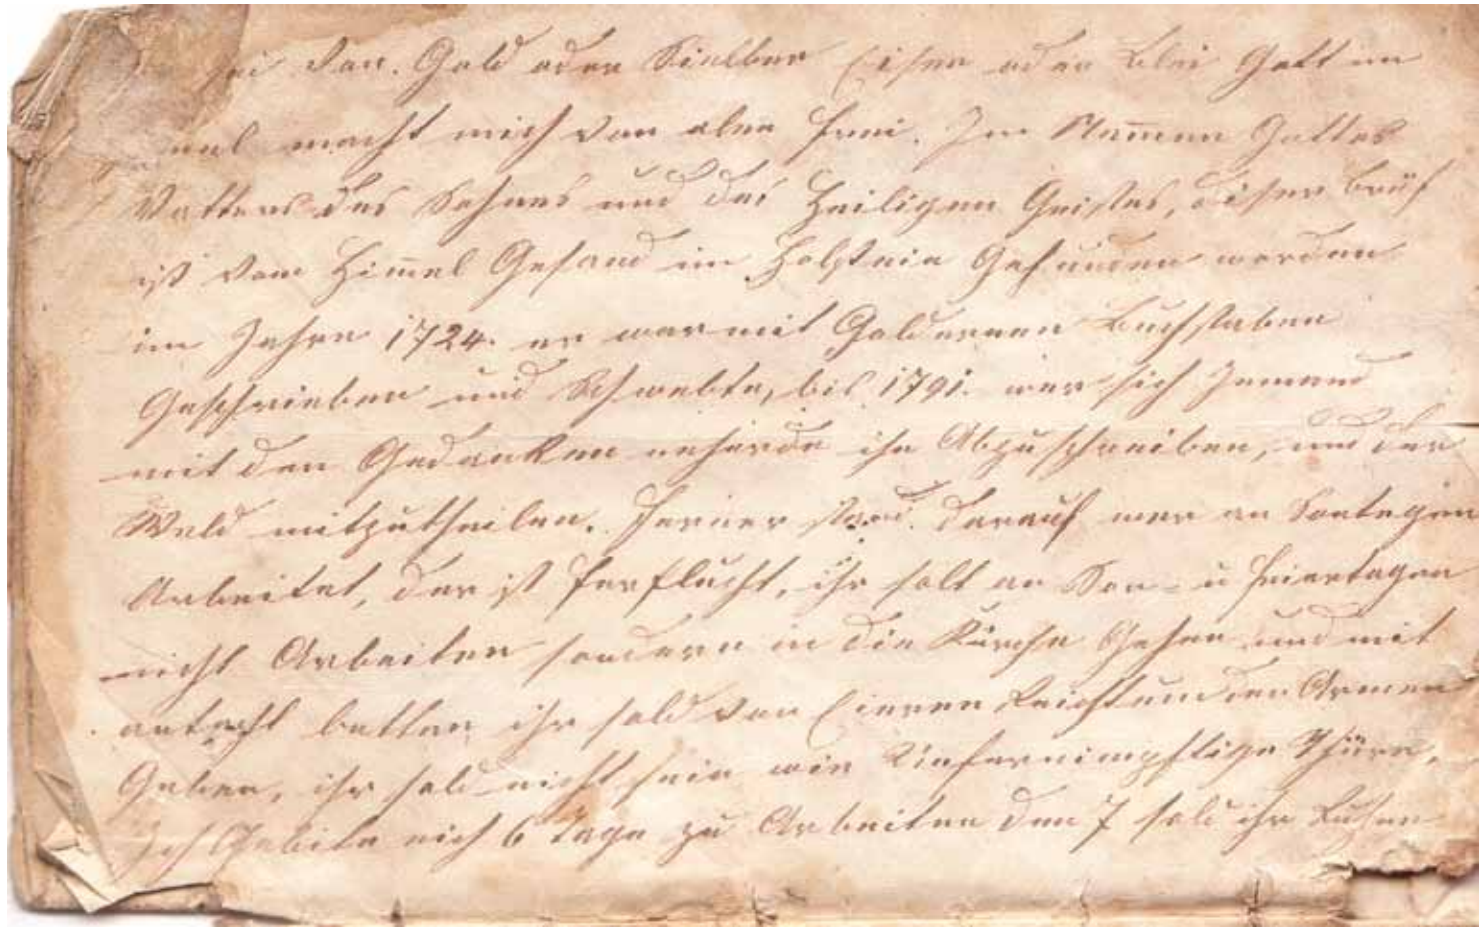 sei von. Gold oder Sielber Eisen oder Blei Gott im
mel macht mich von alen frei. Im Nammen Gottes
Vatters des Sohnes und des Heiligen Geistes, diser brief
ist vom Himmel Gesand im Holstein Gefunden worden
im Jahre 1724. er war mit Goldernen Buchstaben
Geschrieben und Schwebte, bis 1791. wer sich Jemand
mit den Gedanken ihn Abzuschreiben, und der
Weld mitzutheilen. ferner stand darauf wer an Sontagen
Arbeitet, der ist ferflucht, ihr solt an Son- u feiertagen
nicht Arbeiten sondern in die Kirche Gehen und mit
antacht betten ihr sold von Eieren Reichtum den Armen
Geben, ihr sold nicht sein wie Thiere,
Ich Gebite eich 6 Tage zu Arbeiten den 7 sold ihr